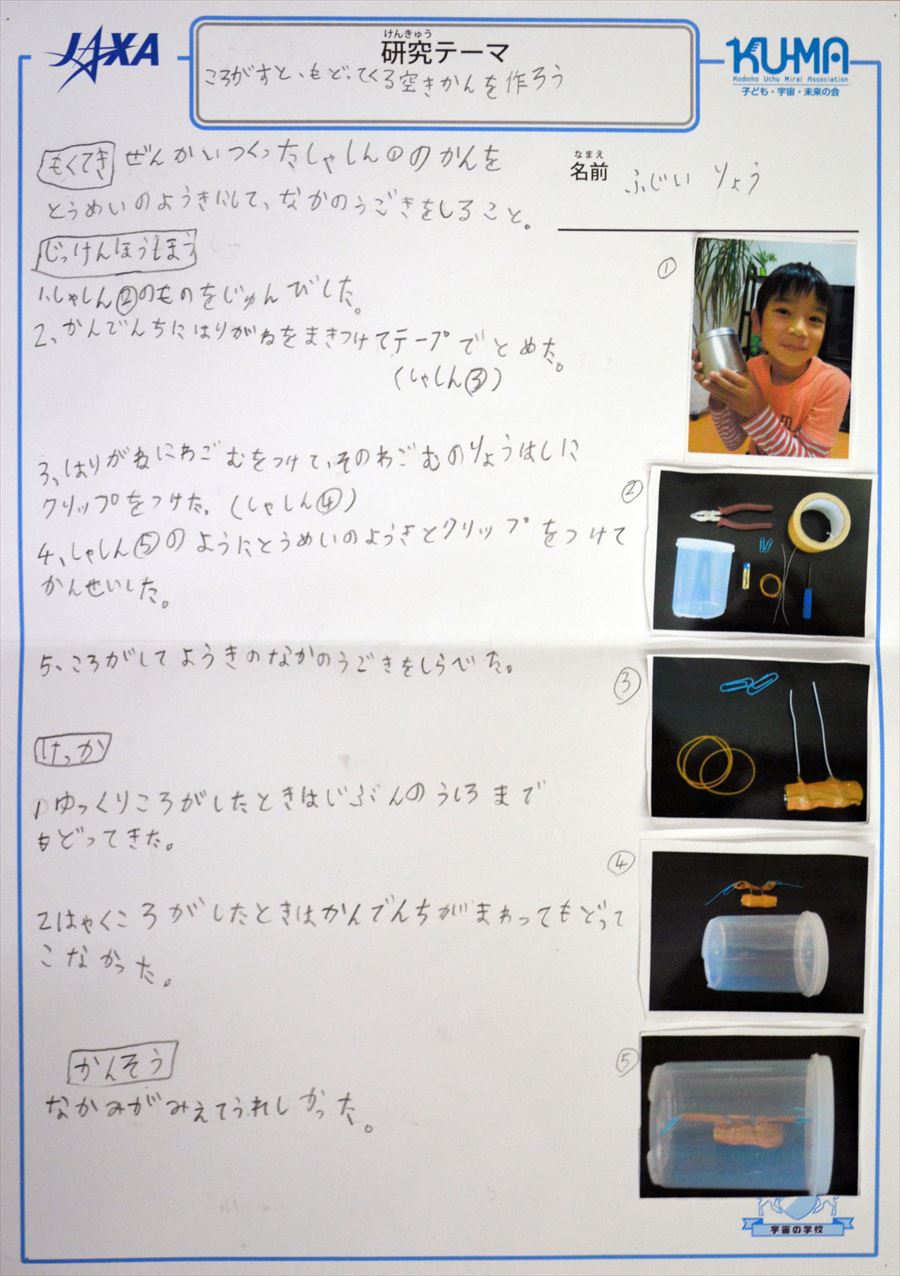 JAXA
けんきゅう
研究テーマ
ころがすと、もどってくる空きかんを作ろう
KU-MA
Kodomo Uchu Mirai Association
子ども・宇宙・未来の会
もくてき ぜんかいつくったしゃしん①のかんを
とうめいのようきにして、なかのうごきをしること。
なまえ
名前 ふじい りょう
じっけんほうほう
1、しゃしん②のものをじゅんびした。
2、かんでんちにはりがねをまきつけてテープでとめた。
(しゃしん③)
3、はりがねにわごむをつけて、そのわごむのりょうはしに
クリップをつけた。(しゃしん④)
4、しゃしん⑤のようにとうめいのようきとクリップをつけて
かんせいした。
5、ころがしてようきのなかのうごきをしらべた。
けっか
1、ゆっくりころがしたときはじぶんのうしろまで
もどってきた。
2はやくころがしたときはかんでんちがまわってもどって
こなかった。
かんそう
なかみがみえてうれしかった。
①
②
③
④
⑤
宇宙の学校